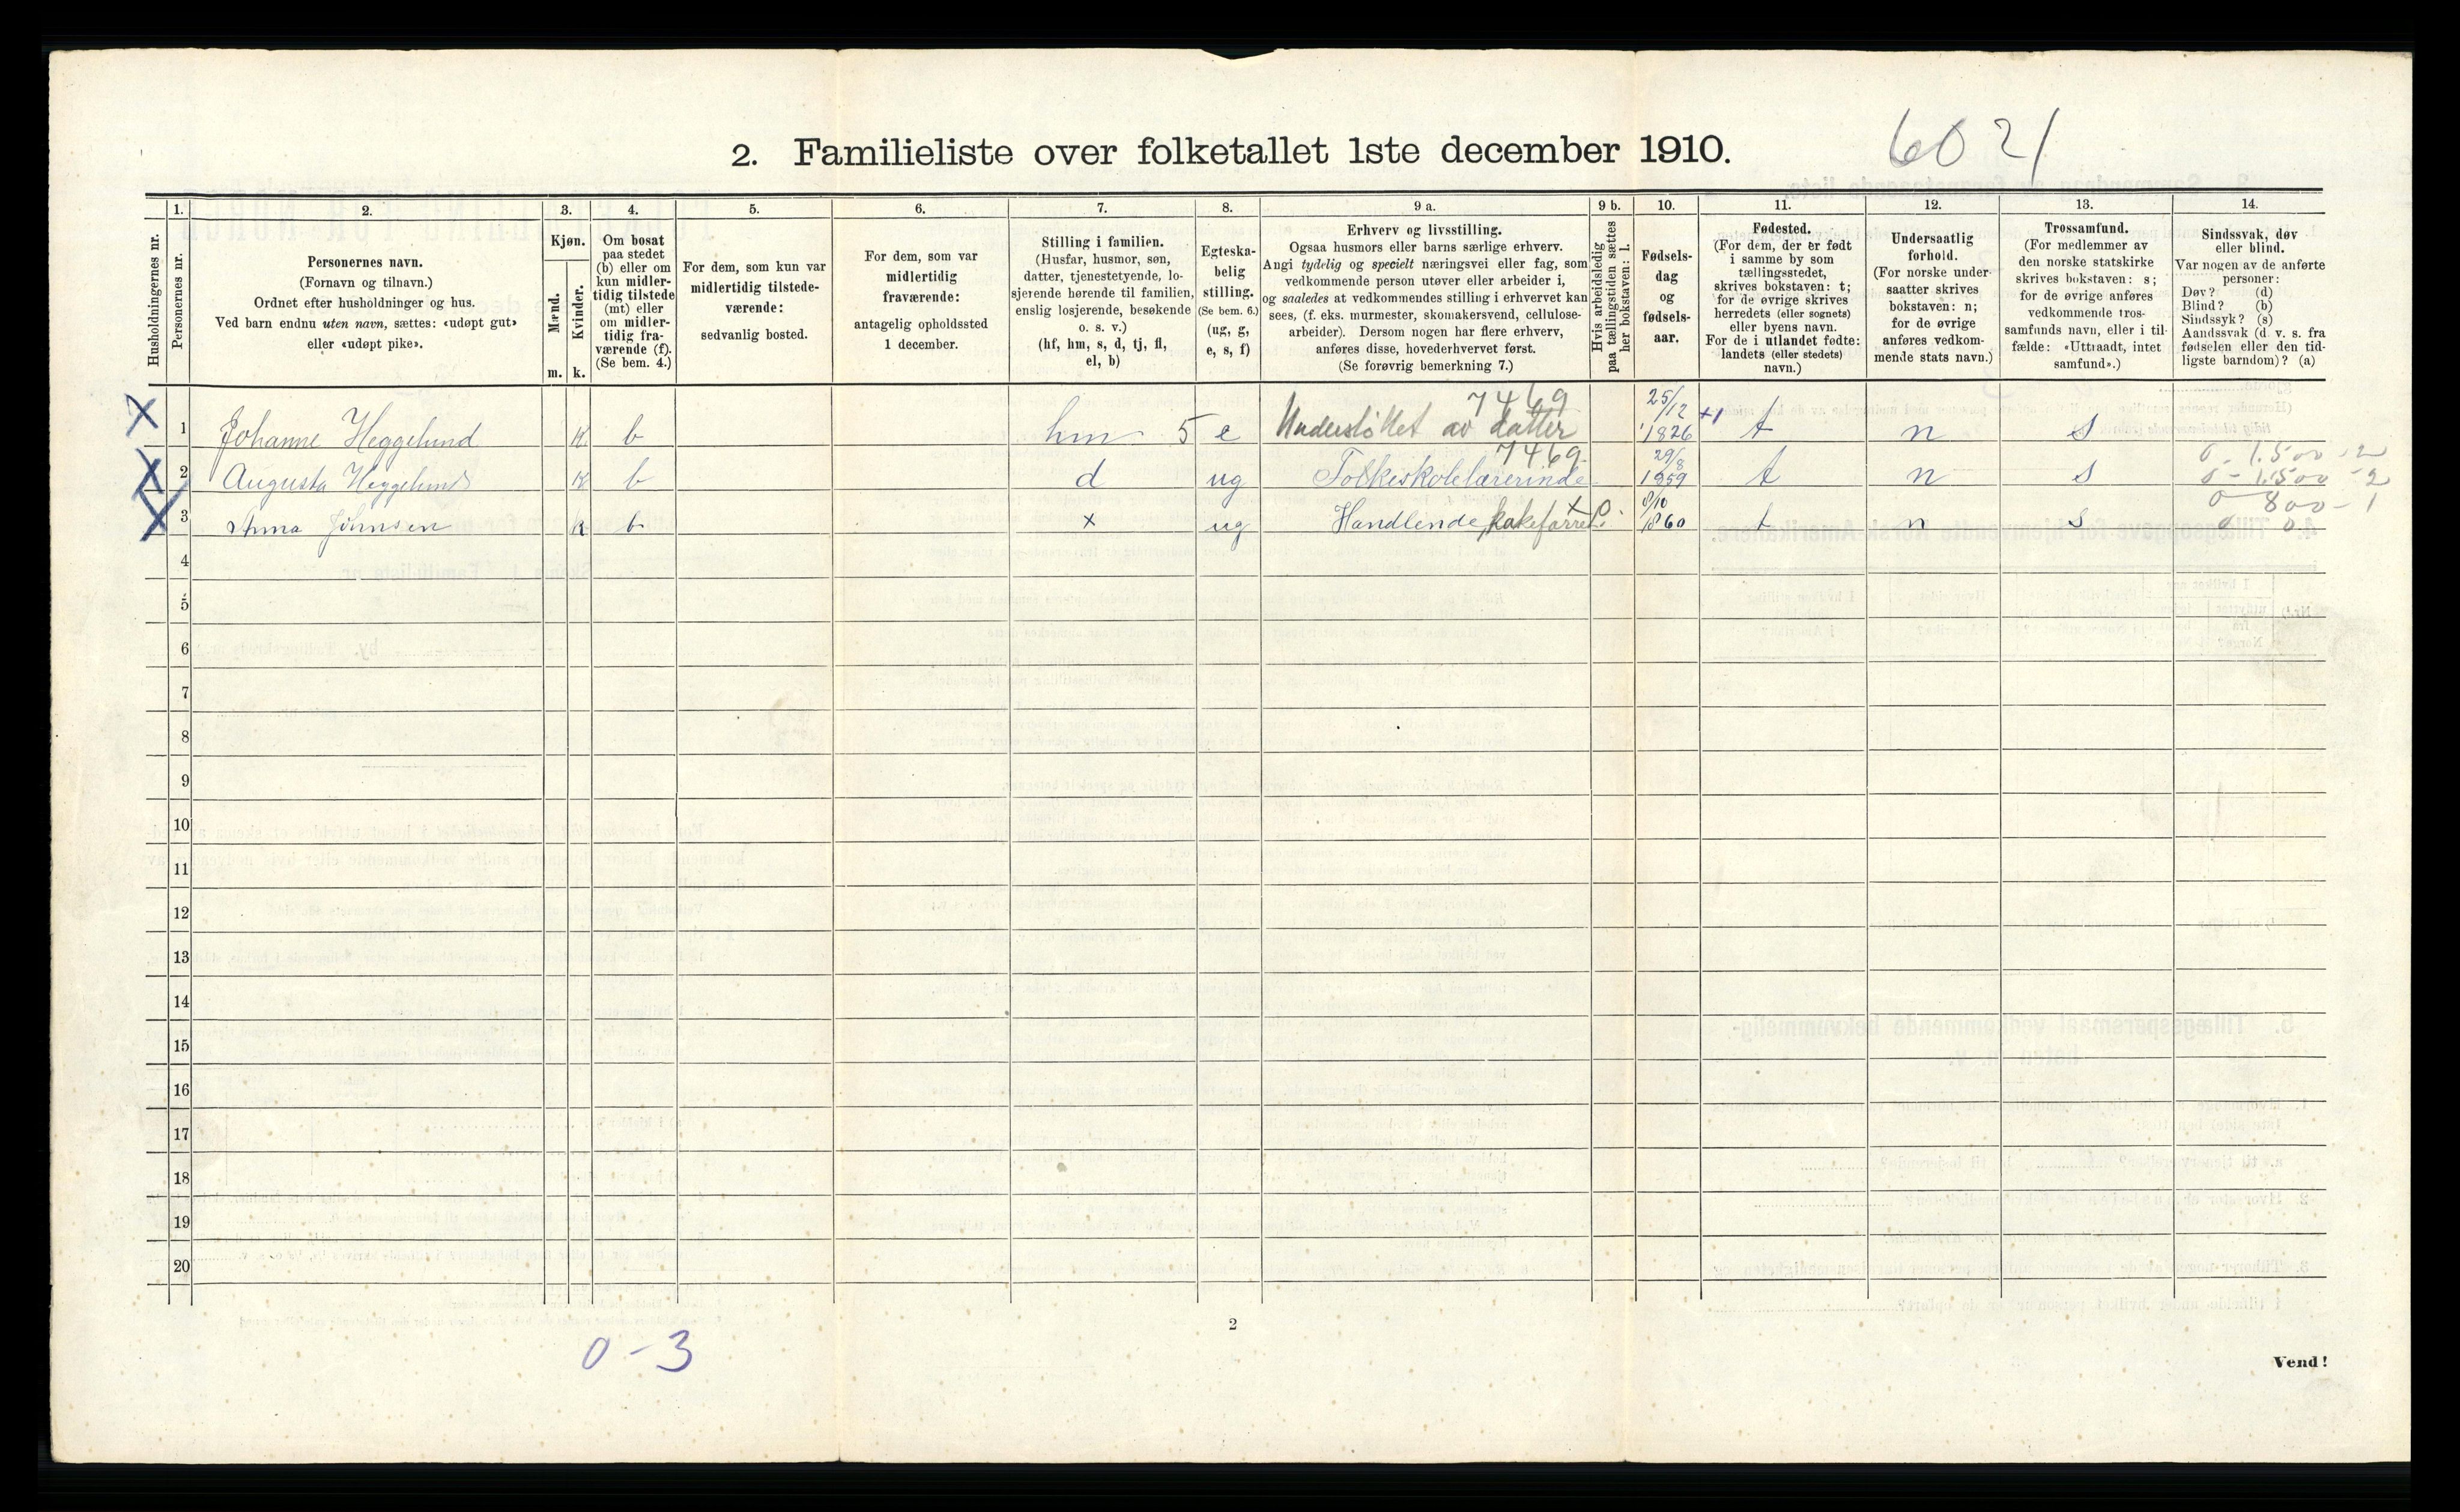 6021
2. Familieliste over folketallet 1ste december 1910.
Husholdningernes nr.
1.
Personernes nr.
2.
Personernes navn.
(Fornavn og tilnavn.)
Ordnet efter husholdninger og hus.
Ved barn endnu uten navn, sættes: «udøpt gut»
eller «udøpt pike».
3.
Kjøn.
Mænd.
Kvinder.
m. k.
4.
Om bosat
paa stedet
(b) eller om
kun midler-
tidig tilstede
(mt) eller
om midler-
tidig fra-
værende (f).
(Se bem. 4.)
5.
For dem, som kun var
midlertidig tilstede-
værende:
sedvanlig bosted.
6.
For dem, som var
midlertidig
fraværende:
antagelig opholdssted
1 december.
7.
Stilling i familien.
(Husfar, husmor, søn,
datter, tjenestetyende, lo-
sjerende hørende til familien,
enslig losjerende, besøkende
o. s. v.)
(hf, hm, s, d, tj, fl,
el, b)
8.
Egteska-
belig
stilling.
(Se bem. 6.)
(ug, g,
e, s, f)
9 a.
Erhverv og livsstilling.
Ogsaa husmors eller barns særlige erhverv.
Angi tydelig og specielt næringsvei eller fag, som
vedkommende person utøver eller arbeider i,
og saaledes at vedkommendes stilling i erhvervet kan
sees, (f. eks. murmester, skomakersvend, cellulose-
arbeider). Dersom nogen har flere erhverv,
anføres disse, hovederhvervet først.
(Se forøvrig bemerkning 7.)
9 b.
Hvis arbeidsledig
paa tællingstiden sættes
her bokstaven: l.
10.
Fødsels-
dag
og
fødsels-
aar.
11.
Fødested.
(For dem, der er født
i samme by som
tællingsstedet,
skrives bokstaven: t;
for de øvrige skrives
herredets (eller sognets)
eller byens navn.
For de i utlandet fødte:
landets (eller stedets)
navn.)
12.
Undersaatlig
forhold.
(For norske under-
saatter skrives
bokstaven: n;
for de øvrige
anføres vedkom-
mende stats navn.)
13.
Trossamfund.
(For medlemmer av
den norske statskirke
skrives bokstaven: s;
for de øvrige anføres
vedkommende tros-
samfunds navn, eller i til-
fælde: «Uttraadt, intet
samfund».)
14.
Sindssvak, døv
eller blind.
Var nogen av de anførte
personer:
Døv? (d)
Blind? (b)
Sindssyk? (s)
Aandssvak (d. v. s. fra
fødselen eller den tid-
ligste barndom)? (a)
X 1 Johanne Heggelund K b hm 5 e 7469 Understöttet av datter 25/12 1826 +1 t n s
X 2 Augusta Heggelund K b d ug 7469 Folkeskolelærerinde 29/8 1859 t n s 0 - 1.500 - 2
0 - 1.500 - 2
X 3 Anna Johnsen K b x ug Handlende, x p. 8/10 1860 t n s 0 800 - 1
0 0
4
5
6
7
8
9
10
11
12
13
14
15
16
17
18
19
20
0 - 3
2
Vend!